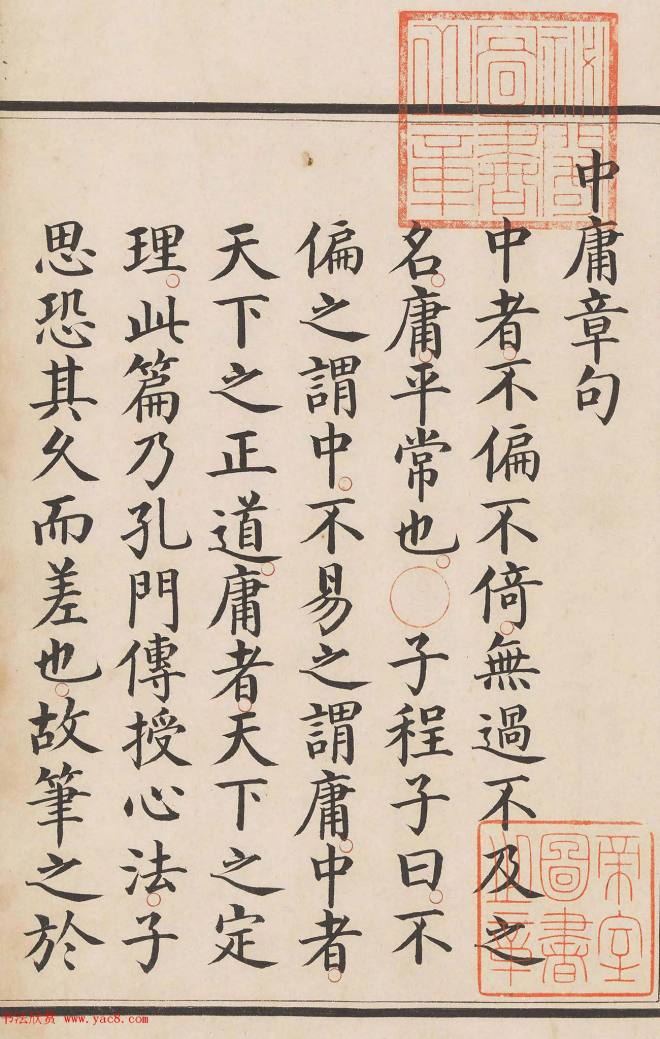 中庸章句
中者不偏不倚無過不及之
名庸平常也○子程子曰不
偏之謂中不易之謂庸中者
天下之正道庸者天下之定
理此篇乃孔門傳授心法子
思恐其久而差也故筆之於
秘閣圖書之章
帝室圖書之章
书法欣赏 www.yac8.com